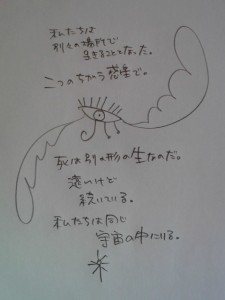 私たちは
別々の場所で
生きることとなった。
二つのちがう惑星で。
死は別の形の生なのだ。
遠いけど
続いている。
私たちは同じ
宇宙の中にいる。